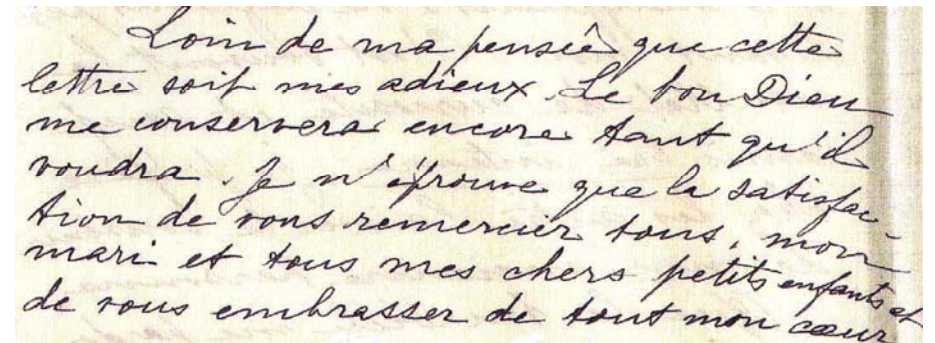 Loin de ma pensée que cette
lettre soit mes adieux. Le bon Dieu
me conservera encore tant qu'il
voudra. Je n'éprouve que la satisfac-
tion de vous remercier tous, mon
mari et tous mes chers petits enfants et
de vous embrasser de tout mon cœur